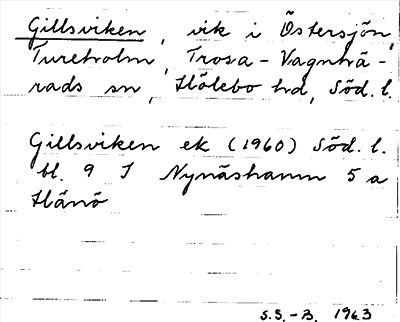 Gillsviken, vik i Östersjön,
Tureholm, Trosa-Vagnhä-
rads sn, Hölebo hd, Söd. l.
Gillsviken ek (1960) Söd. l.
bl. 9 I Nynäshamn 5 a
Hånö
S.S.-B. 1963